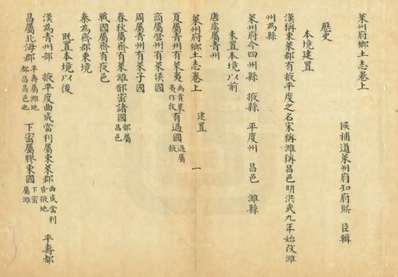 萊州府鄉土志卷上
候補道萊州府知府 臣輯
歷史
本境建置
漢稱東萊郡有掖平度之名宋稱濰稱昌邑明洪武九年始改濰
州為縣
萊州府今四州縣 掖縣 平度州 昌邑 濰縣
未置本境以前
唐虞屬青州
萊州府鄉土志卷上 建置 一
夏屬青州有萊夷 有過國
商屬營州有萊侯國
周屬青州有萊子國
春秋屬齊有萊濰郚訾諸國
戰國屬齊有夜邑
秦為齊郡東境
既置本境以後
漢為青州部 掖平度曲成當利屬東萊郡 平壽都
昌屬北海郡 下密屬膠東國